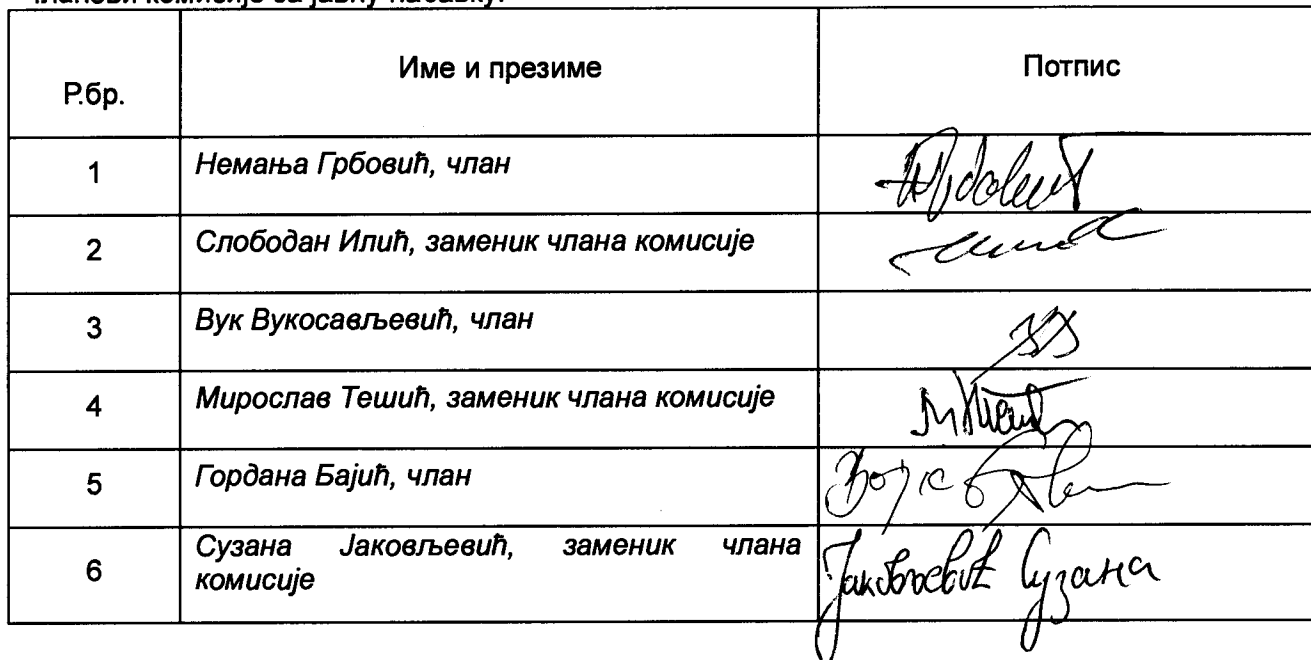 Р.бр. Име и презиме Потпис
1 Немања Грбовић, члан
2 Слободан Илић, заменик члана комисије
3 Вук Вукосављевић, члан
4 Мирослав Тешић, заменик члана комисије
5 Гордана Бајић, члан
6 Сузана Јаковљевић, заменик члана
комисије Јаковљевић Сузана